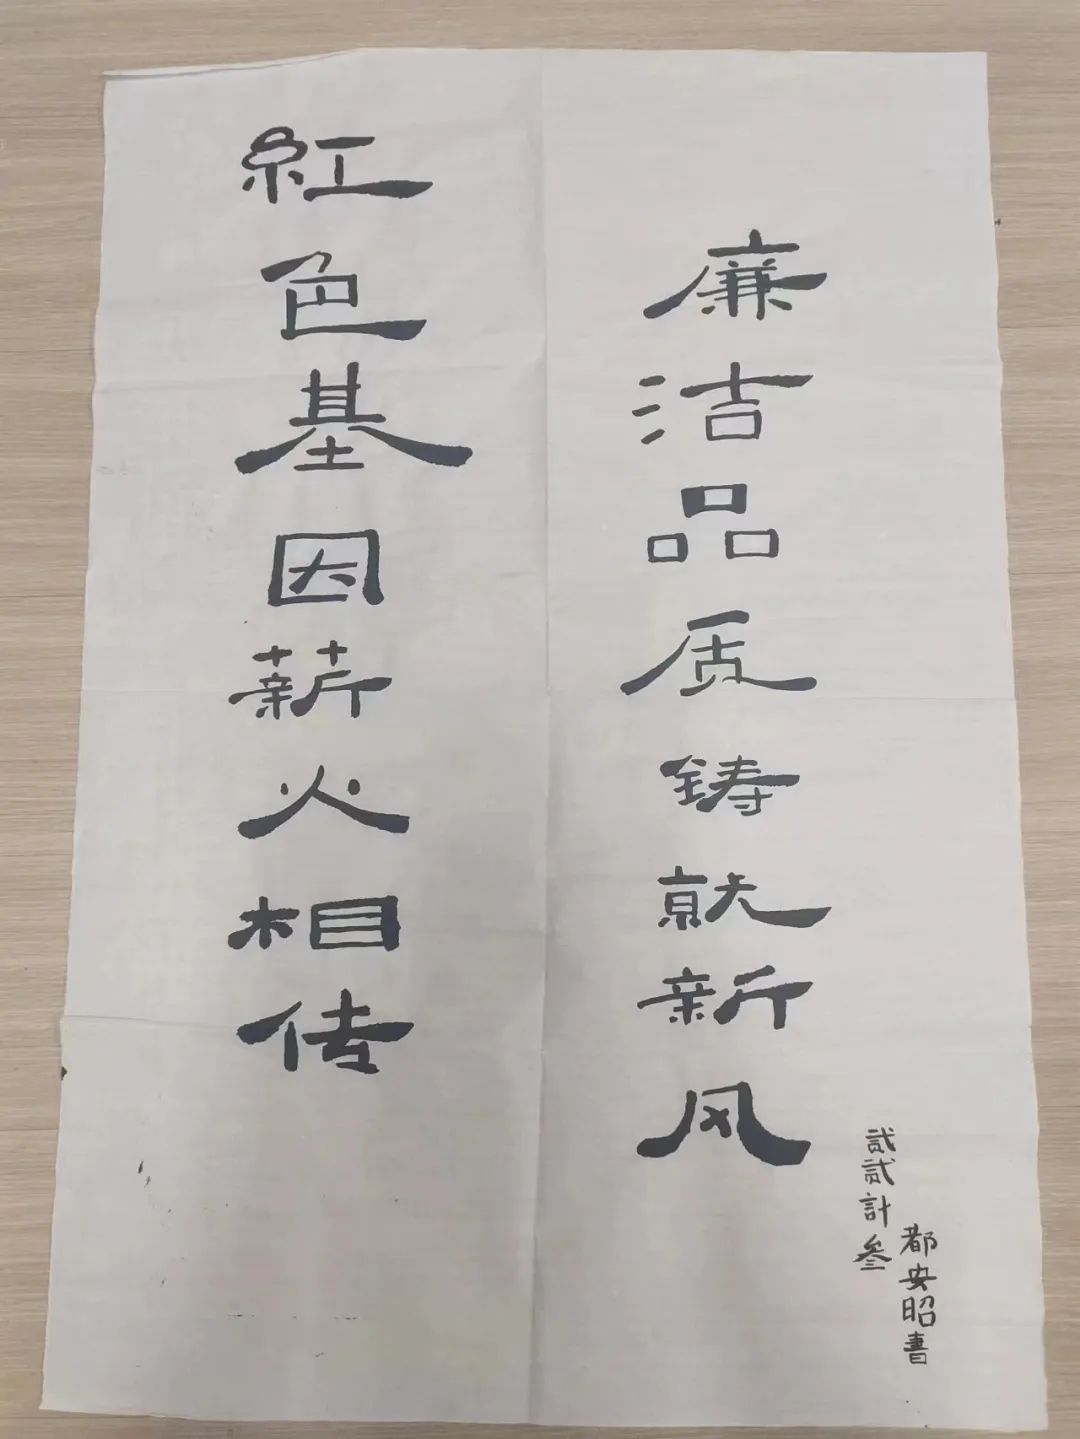 紅色基因薪火相传
廉洁品质铸就新风
贰贰計叁
都安昭書